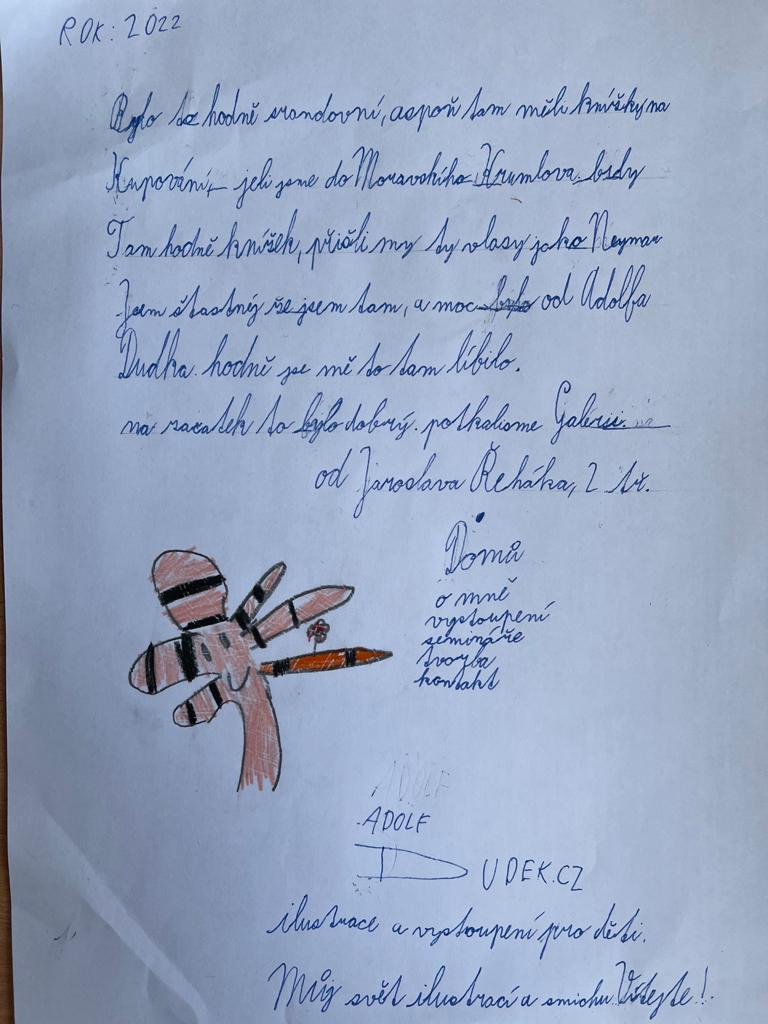 ROK: 2022
Bylo to hodně srandovní, aspoň tam měli knížky na
Kupování, jeli jsme do Moravského Krumlova. byly
Tam hodně knížek, přišli my ty vlasy jako Neymar
Jsem štastný že jsem tam, a moc bylo od Adolfa
Dudka. hodně se mě to tam líbilo.
na začatek to bylo dobrý. potkalisme Galerii.
od Jaroslava Řeháka, 2 tř.
Domů
o mně
vystoupení
semináře
tvorba
kontakt
ADOLF
ADOLF
DUDEK.CZ
ilustrace a vystoupení pro děti.
Můj svět ilustrací a smíchu. Vítejte!